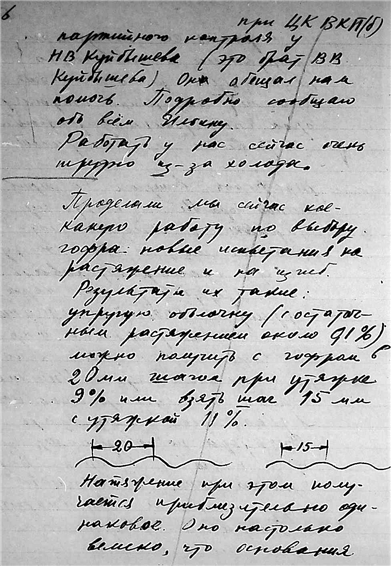 6
при ЦК ВКП(б)
партийного контроля у
НВ Куйбышева (это брат ВВ
Куйбышева) Он обещал нам
помочь. Подробно сообщаю
обо всём Илькину.
Работать у нас сейчас очень
трудно из-за холода.
Проделали мы сейчас кое-
какую работу по выбору
гофра: новые испытания на
растяжение и на изгиб.
Результаты их такие:
упругую оболочку (с остаточ-
ным растяжением около 0,1%)
можно получить с гофром в
20 мм шагом при утяжке
9% или взять шаг 15 мм
с утяжкой 11%.
20 15
Натяжение при этом полу-
чается приблизительно оди-
наковое. Оно настолько
велико, что основания